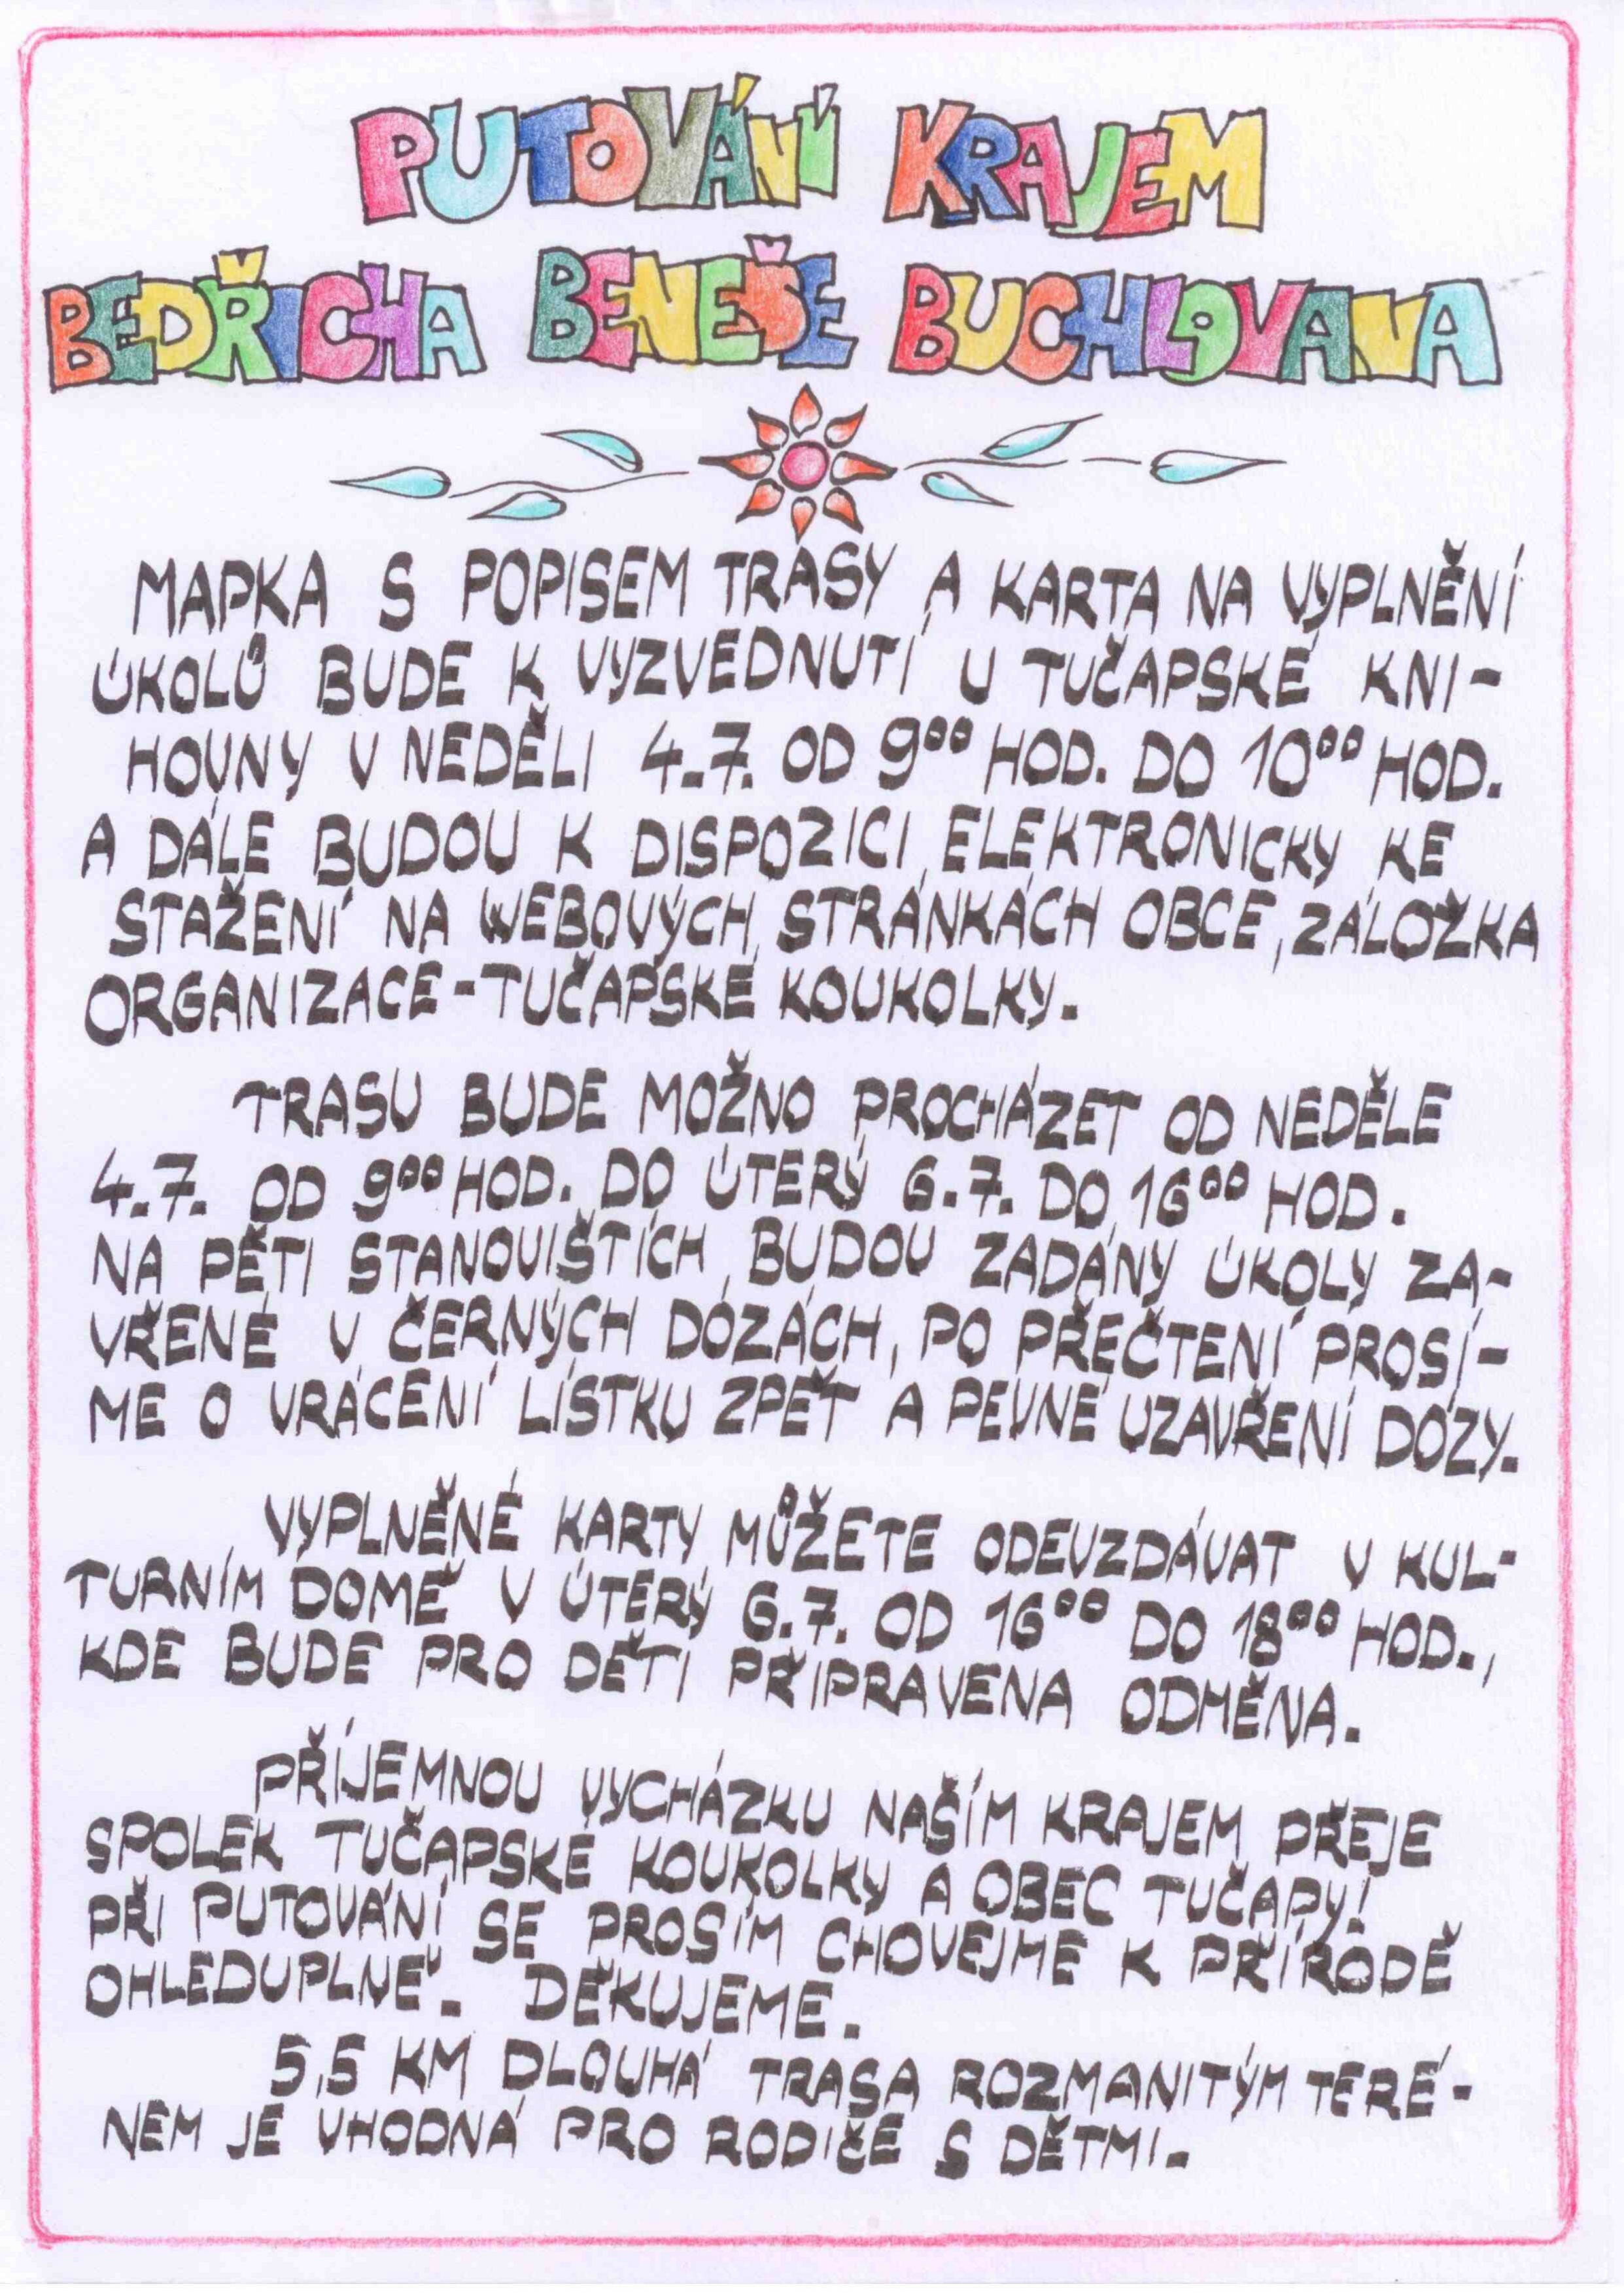 PUTOVÁNÍ KRAJEM
BEDŘICHA BENEŠE BUCHLOVANA
MAPKA S POPISEM TRASY A KARTA NA VYPLNĚNÍ
ÚKOLŮ BUDE K VYZVEDNUTÍ U TUČAPSKÉ KNI-
HOVNY V NEDĚLI 4.7. OD 9⁰⁰ HOD. DO 10⁰⁰ HOD.
A DÁLE BUDOU K DISPOZICI ELEKTRONICKY KE
STAŽENÍ NA WEBOVÝCH STRÁNKÁCH OBCE, ZÁLOŽKA
ORGANIZACE-TUČAPSKÉ KOUKOLKY.
TRASU BUDE MOŽNO PROCHÁZET OD NEDĚLE
4.7. OD 9⁰⁰ HOD. DO ÚTERÝ 6.7. DO 16⁰⁰ HOD.
NA PĚTI STANOVIŠTÍCH BUDOU ZADÁNY ÚKOLY ZA-
VŘENÉ V ČERNÝCH DÓZÁCH, PO PŘEČTENÍ PROSÍ-
ME O VRÁCENÍ LÍSTKU ZPĚT A PEVNÉ UZAVŘENÍ DÓZY.
VYPLNĚNÉ KARTY MŮŽETE ODEVZDÁVAT V KUL-
TURNÍM DOMĚ V ÚTERÝ 6.7. OD 16⁰⁰ DO 18⁰⁰ HOD.,
KDE BUDE PRO DĚTI PŘIPRAVENA ODMĚNA.
PŘÍJEMNOU VYCHÁZKU NAŠÍM KRAJEM PŘEJE
SPOLEK TUČAPSKÉ KOUKOLKY A OBEC TUČAPY!
PŘI PUTOVÁNÍ SE PROSÍM CHOVEJME K PŘÍRODĚ
OHLEDUPLNĚ. DĚKUJEME.
5,5 KM DLOUHÁ TRASA ROZMANITÝM TERÉ-
NEM JE VHODNÁ PRO RODIČE S DĚTMI.